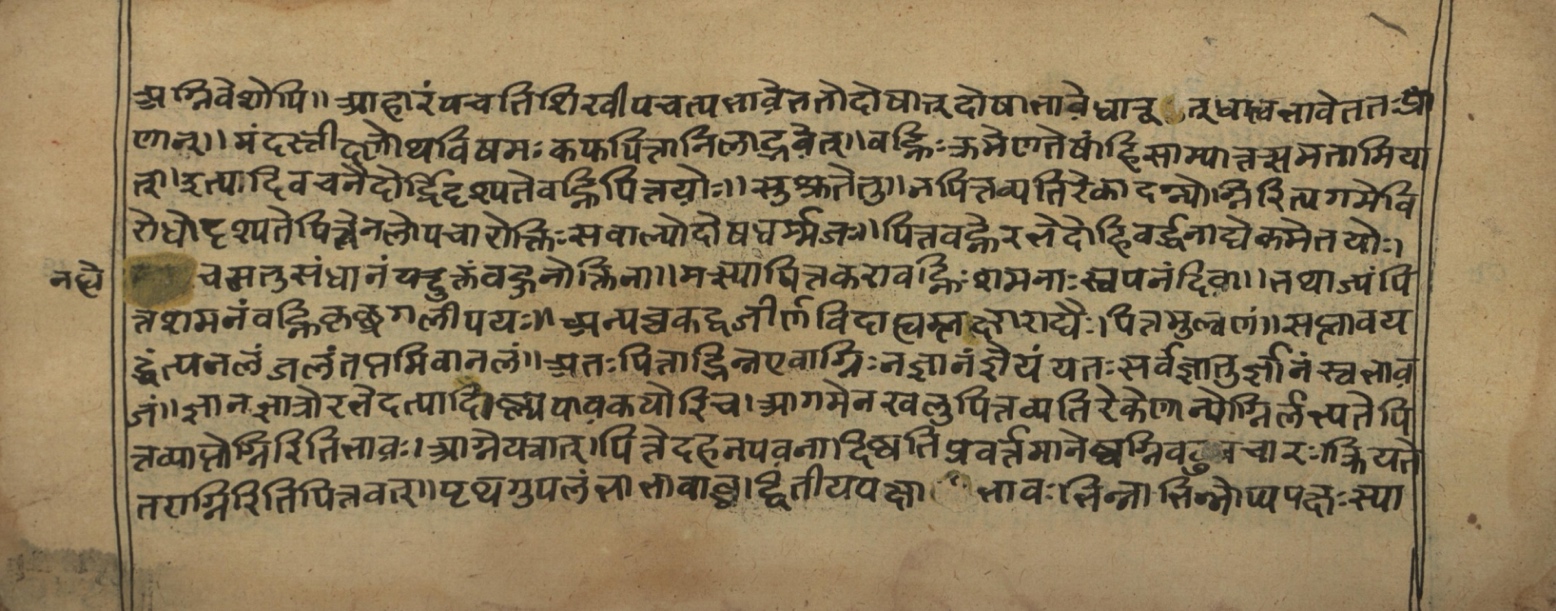 अग्निवेशोपि॥ आहारं पचति शिखी पचत्पभावे ततो दोषान् दोषाभावे धातून् धात्वभावे ततः प्रा
णान्॥ मंदस्तीक्ष्णोथ विषमः कफपित्तानिलाद्भवेत्॥ वह्निः क्रमेण तेषां हि साम्यात्तसमतामिया
त्॥ इत्यादिवचनैर्दोर्द्वि दृश्यते वह्निपित्तयोः॥ सुश्रुते तु॥ न पित्तव्यतिरेकादन्योग्निरित्यगमेवि
रोधो दृश्यते पित्तेनलोपचारोक्तिः सवाल्योदोषधर्म्मजः॥ पित्तवह्नेरभेदो हि वर्द्धनाद्येकमेतयोः।
नह्ये
च मतुसंधानं यदुक्तं वहुनोक्तिना॥ मत्स्या पित्तकरा वह्निः शमनाः स्वपनं दिवा॥ तथाज्यं पि
त्तशमनं वह्निकृच्छगलीपयः॥ अन्यच्च कद्वजीर्ण विदाह्यम्लक्षाराद्यैः। पित्तमुल्वणं॥ सप्लावय
द्धंत्यनलं जलं तप्तमिवानलं॥ अतः पित्ताद्भिन्न एवाग्निः न ज्ञानं ज्ञेयं यतः सर्वं ज्ञातुर्ज्ञानं स्वभाव
जं॥ ज्ञान ज्ञात्रोरभेदत्यादि पावकयोरिच। आगमेन खलु पित्तव्यतिरेकेणान्योग्निर्लभ्यते पि
त्तव्याप्तोग्निरितिभावः। आग्नेयत्वात्। पित्ते दहनपवनादिष्वति प्रवर्तमानेष्वग्निवदुपचारः क्रियते
तराग्निरिति पित्तवत्॥ पृथगुपलंभाभावाच्च। द्वितीयपक्षा भावः भिन्नाभिन्नोप्यपक्षः स्या